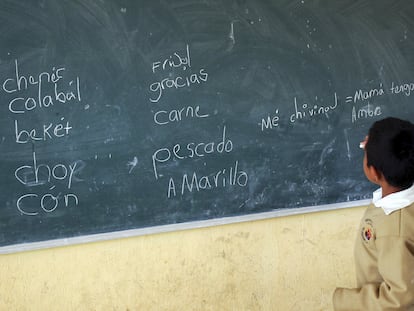 chenek
colabal
beket
choy
cón
frijol
gracias
carne
pescado
AMarillo
Mé chivinaj = Mamá tengo
Ambre